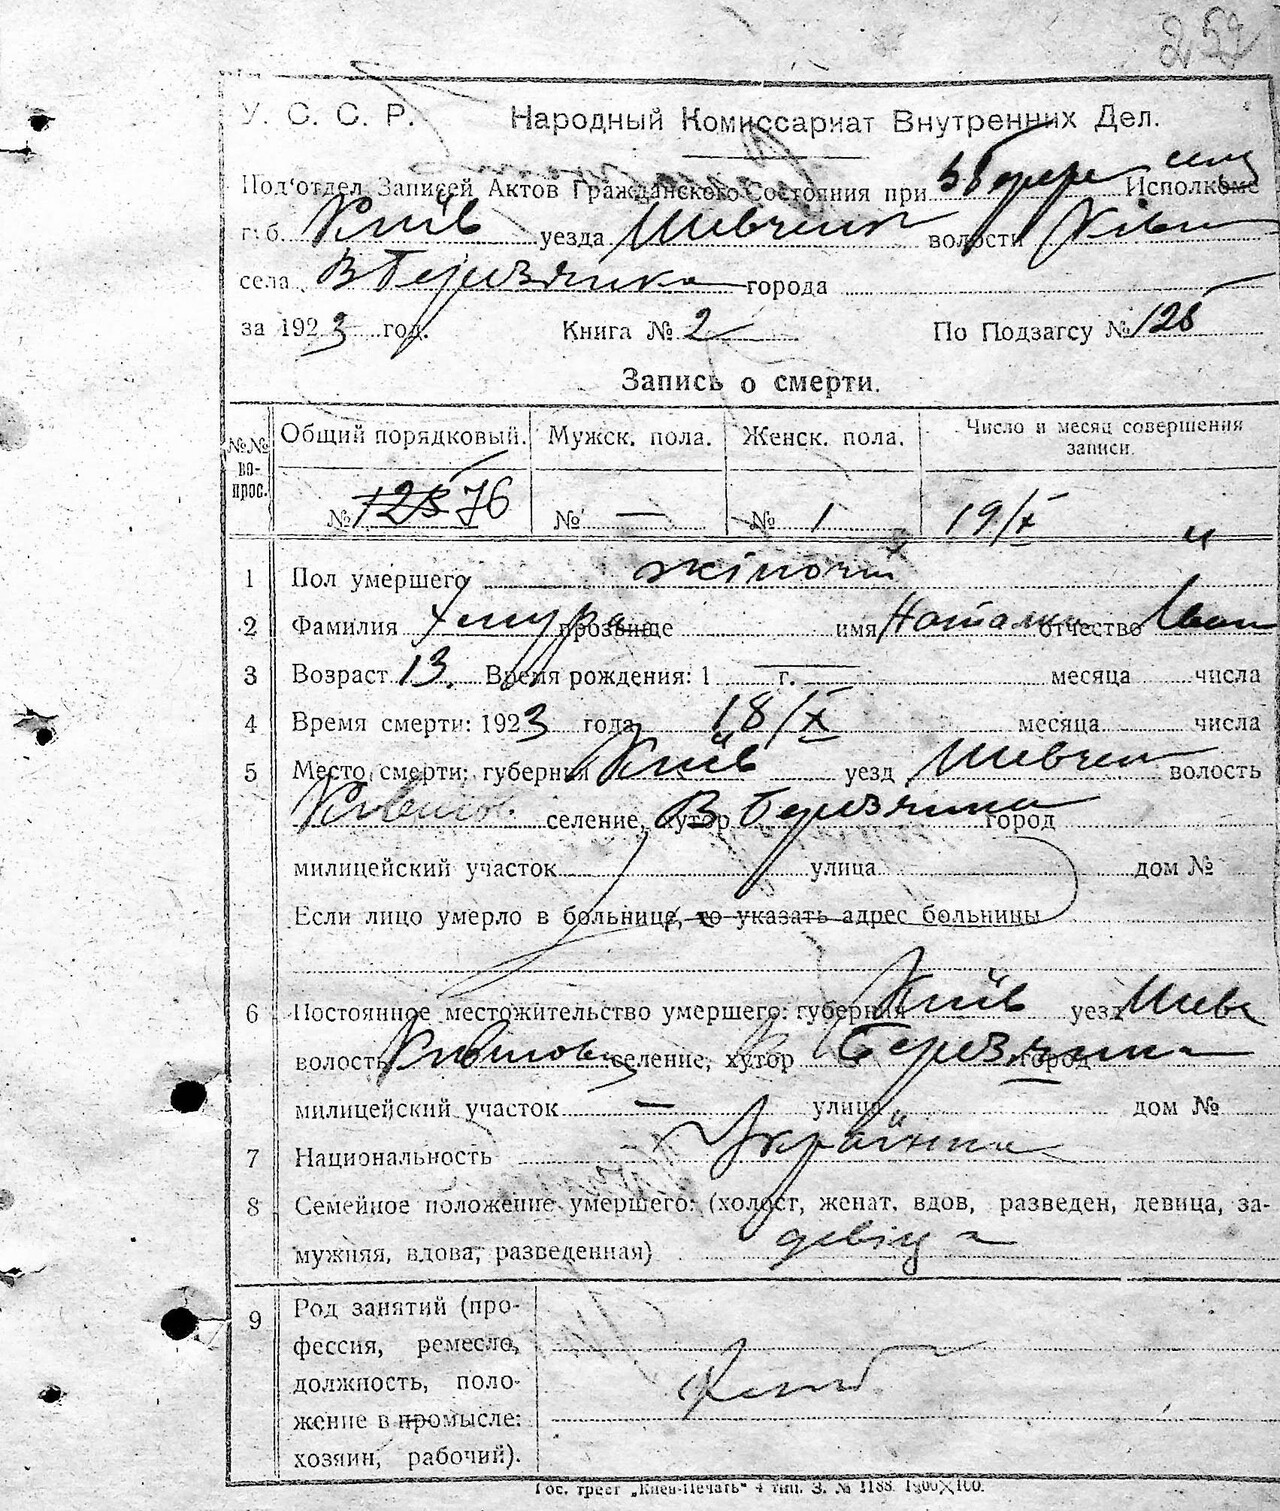 257
У. С. С. Р. Народный Комиссариат Внутренних Дел.
Под'отдел Записей Актов Гражданского Состояния при Исполкоме
губ. Київ уезда Шевченк волости
села В Березянка города
за 1923 год. Книга № 2 По Подзагсу № 125
Запись о смерти.
№№ вопрос. Общий порядковый. Мужск. пола. Женск. пола. Число и месяц совершения записи.
№ 125 76 № — № 1 19/X
1 Пол умершего жіночий
2 Фамилия Хмура прозвище имя Наталка отчество Іван
3 Возраст 13. Время рождения: 1 г. месяца числа
4 Время смерти: 1923 года 18/X месяца числа
5 Место смерти: губерния Київ уезд Шевчен волость
селение, хутор В Березянка город
милицейский участок улица дом №
Если лицо умерло в больнице, то указать адрес больницы
6 Постоянное местожительство умершего: губерния Київ уезд Шевч
волость селение, хутор Березянка город
милицейский участок — улица дом №
7 Национальность Українка
8 Семейное положение умершего: (холост, женат, вдов, разведен, девица, за-
мужняя, вдова, разведенная) девіця
9 Род занятий (про-
фессия, ремесло,
должность, поло-
жение в промысле:
хозяин, рабочий).
Гос. трест „Киев-Печать" 4 тип. З. № 1188. 1300×100.